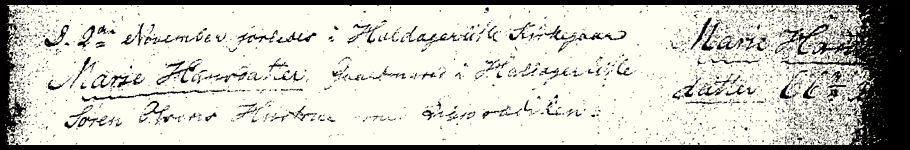 D. 2den November jordedes i Haldagerlille Kirkegaard
Marie Hansdatter, Gaardmand i Haldagerlille
Søren Olsens Hustrue
Marie Hans
datter 66½